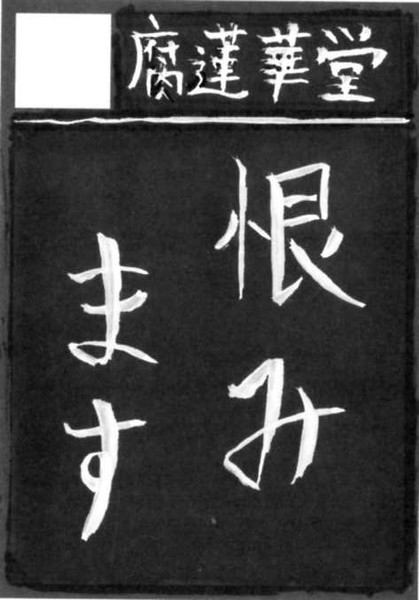 腐蓮華堂
恨み
ます